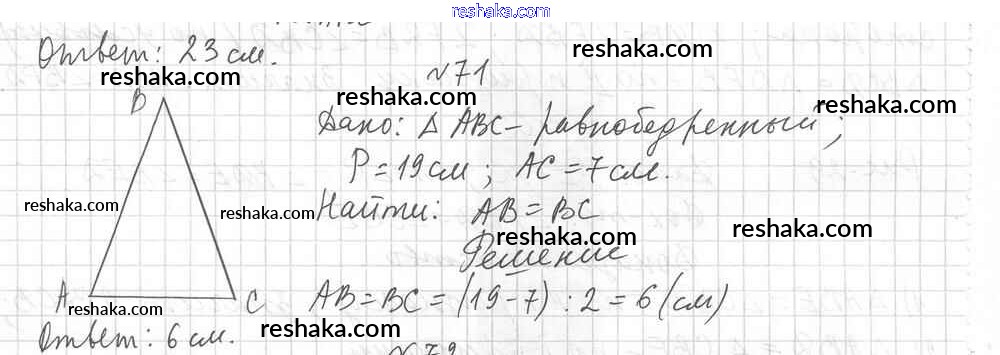 reshaka.com
Ответ: 23 см.
reshaka.com
reshaka.com
№71
reshaka.com
reshaka.com
B
Дано: Δ ABC - равнобедренный;
P = 19 см; AC = 7 см.
reshaka.com
reshaka.com
Найти: AB = BC
reshaka.com
reshaka.com
Решение
A
C
AB = BC = (19 - 7) : 2 = 6 (см)
reshaka.com
Ответ: 6 см.
reshaka.com